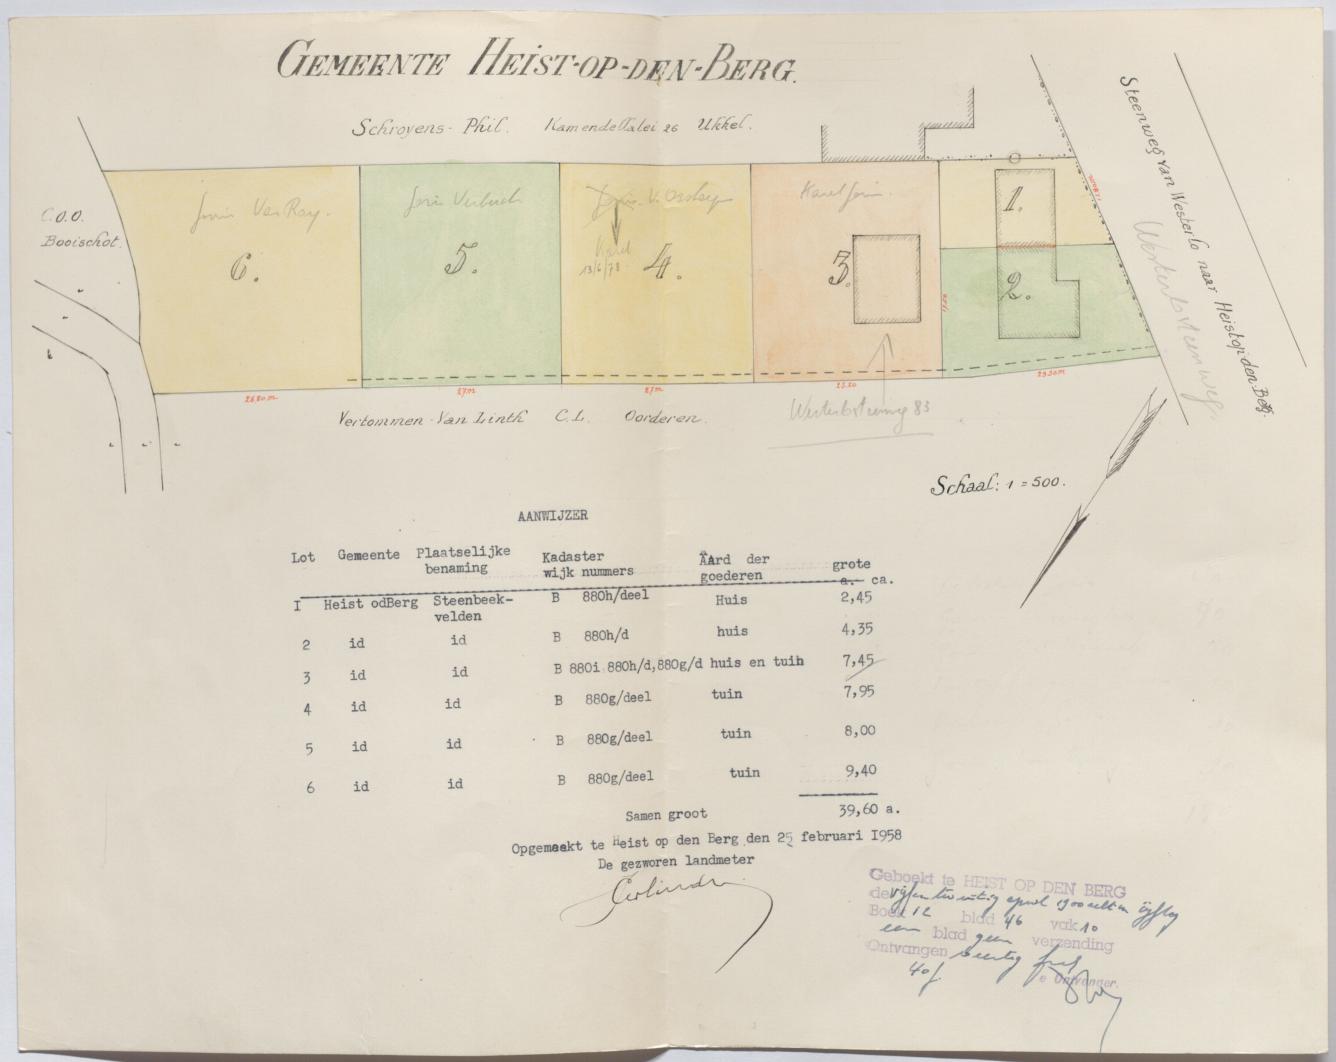 GEMEENTE HEIST-OP-DEN-BERG.
Schroyens- Phil. Kamendellalei 26 Ukkel.
C.O.O.
Booischot.
6.
5.
4.
13/6/78
Karel Joris.
3.
1.
2.
Steenweg van Westerlo naar Heist op-den-Berg.
Westerlosteenweg.
26.80 m
27 m
27 m
25.20
29.50 m
Vertommen-Van Linth C.L. Oorderen.
Westerlosteenweg 83
Schaal: 1 = 500.
AANWIJZER
Lot Gemeente Plaatselijke benaming Kadaster wijk nummers Aard der goederen grote a. ca.
I Heist odBerg Steenbeek-velden B 880h/deel Huis 2,45
2 id id B 880h/d huis 4,35
3 id id B 880i 880h/d,880g/d huis en tuin 7,45
4 id id B 880g/deel tuin 7,95
5 id id B 880g/deel tuin 8,00
6 id id B 880g/deel tuin 9,40
Samen groot 39,60 a.
Opgemaakt te Heist op den Berg den 25 februari I958
De gezworen landmeter
Geboekt te HEIST OP DEN BERG
de vijfentwintig april 1900 acht en vijftig
Boek 12 blad 46 vak 10
een blad geen verzending
Ontvangen veertig frank
40 f
e Ontvanger.